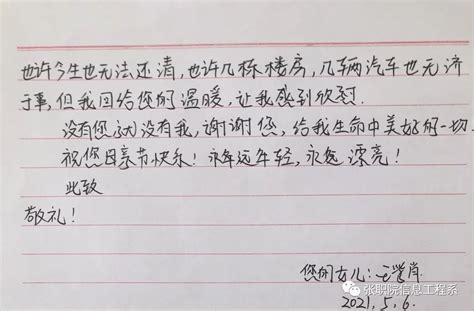 也许今生也无法还清,也许几栋楼房,几辆汽车也无济
于事,但我回给您的温暖,让我感到欣慰.
没有您就没有我,谢谢您,给我生命中美好的一切.
祝您母亲节快乐!永远年轻,永远漂亮!
此致
敬礼!
您的女儿:
2021.5.6.
张职院信息工程系